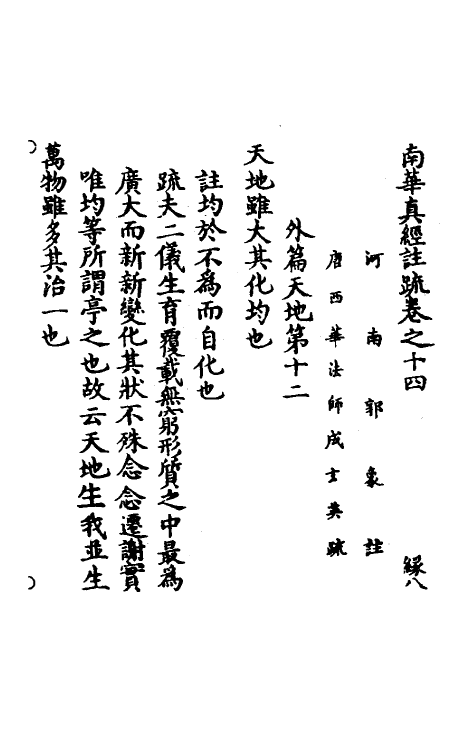 南華真經註疏卷之十四 緣八
河南郭象註
唐西華法師成玄英疏
外篇天地第十二
天地雖大其化均也
註均於不為而自化也
疏夫二儀生育覆載無窮形質之中最為
廣大而新新變化其狀不殊念念遷謝實
唯均等所謂亭之也故云天地生我並生
萬物雖多其治一也